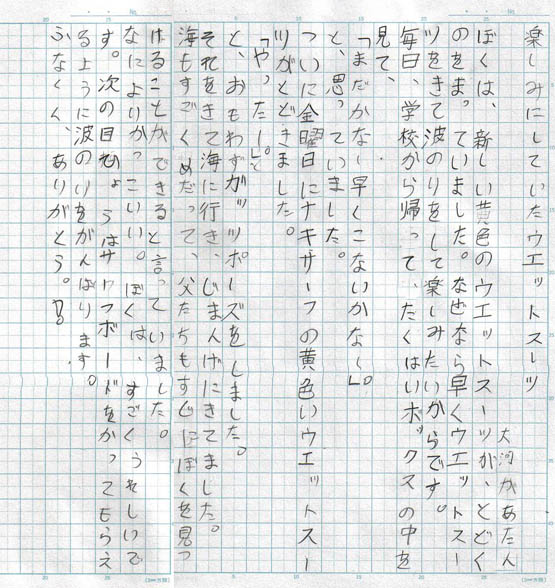 楽しみにしていたウエットスーツ
大河かあたん
ぼくは、新しい黄色のウエットスーツが、とどく
のをまっていました。なぜなら早くウエットスー
ツをきて波のりをして楽しみたいからです。
毎日、学校から帰って、たくはいボックスの中を
見て、
「まだかなー早くこないかなー」。
と、思っていました。
ついに金曜日にナキサーフの黄色いウエットスー
ツがとどきました。
「やったー。」と
と、おもわずガッツポーズをしました。
それをきて海に行き、じまんげにきてました。
海もすごくめだって、父たちもすぐにぼくを見つ
けることができると言っていました。
なによりかっこいい。ぼくは、すごくうれしいで
す。次の目ひょうはサーフボードをかってもらえ
るように波のりをがんばります。
ふなくん、ありがとう。